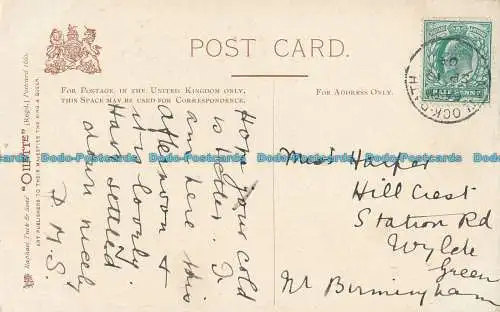 POST CARD.
FOR POSTAGE, IN THE UNITED KINGDOM ONLY,
THIS SPACE MAY BE USED FOR CORRESPONDENCE.
FOR ADDRESS ONLY.
Hope your cold
is better. I
am here this
afternoon &
it is lovely.
Have settled
down nicely
D.M.S.
Miss Harper
Hill Crest
Station Rd
Wylde
Green
Nr Birmingham
Raphael Tuck & Sons' "OILETTE" (Regd.) Postcard
ART PUBLISHERS TO THEIR MAJESTIES THE KING & QUEEN
HALF PENNY
Dodo-Postcards Dodo-Postcards Dodo-Postcards Dodo-Postcards Dodo-Postcards